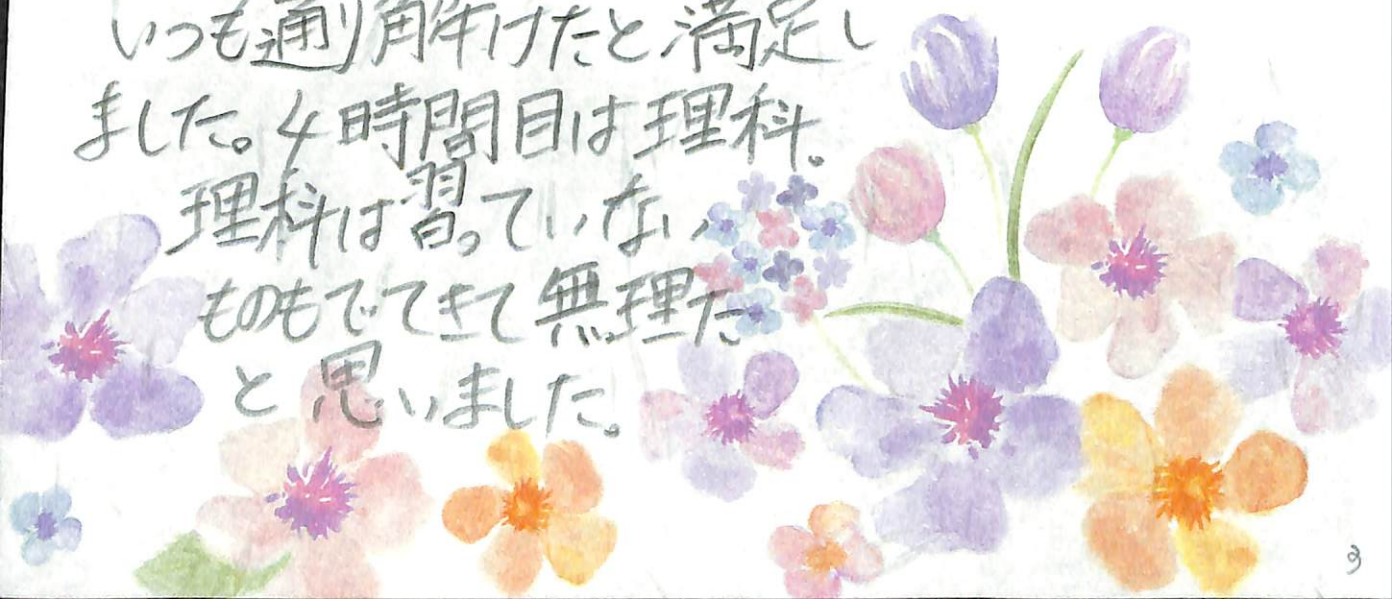 いつも通り解けたと満足し
ました。4時間目は理科。
理科は習っていない
ものもでてきて無理だ
と思いました。
3